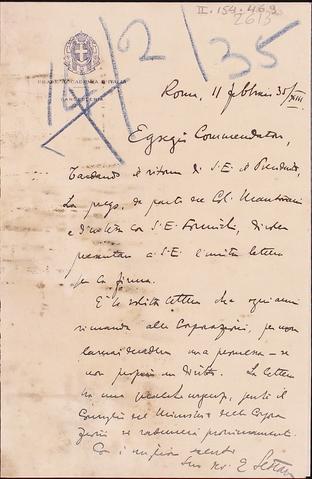 II.154.469
2613
14/2/35
REALE ACCADEMIA D'ITALIA
CANCELLERIA
Roma, 11 febbraio 35/XIII
Egregio Commendatore,
Tardando il ritorno di S.E. il Presidente,
La prego, da parte del Col. Mantovani
e d'intesa con S.E. Formichi, di voler
presentare a S.E. l'unita lettera
per la firma.
È la solita lettera che ogni anni
rimanda alle Corporazioni, per non
una promessa – se
non proprio un diritto. La lettera
ha una qualche urgenza, perché il
Consiglio dei Ministri e delle Corpo
razioni si radunerà prossimamente.
Con i migliori saluti
Suo